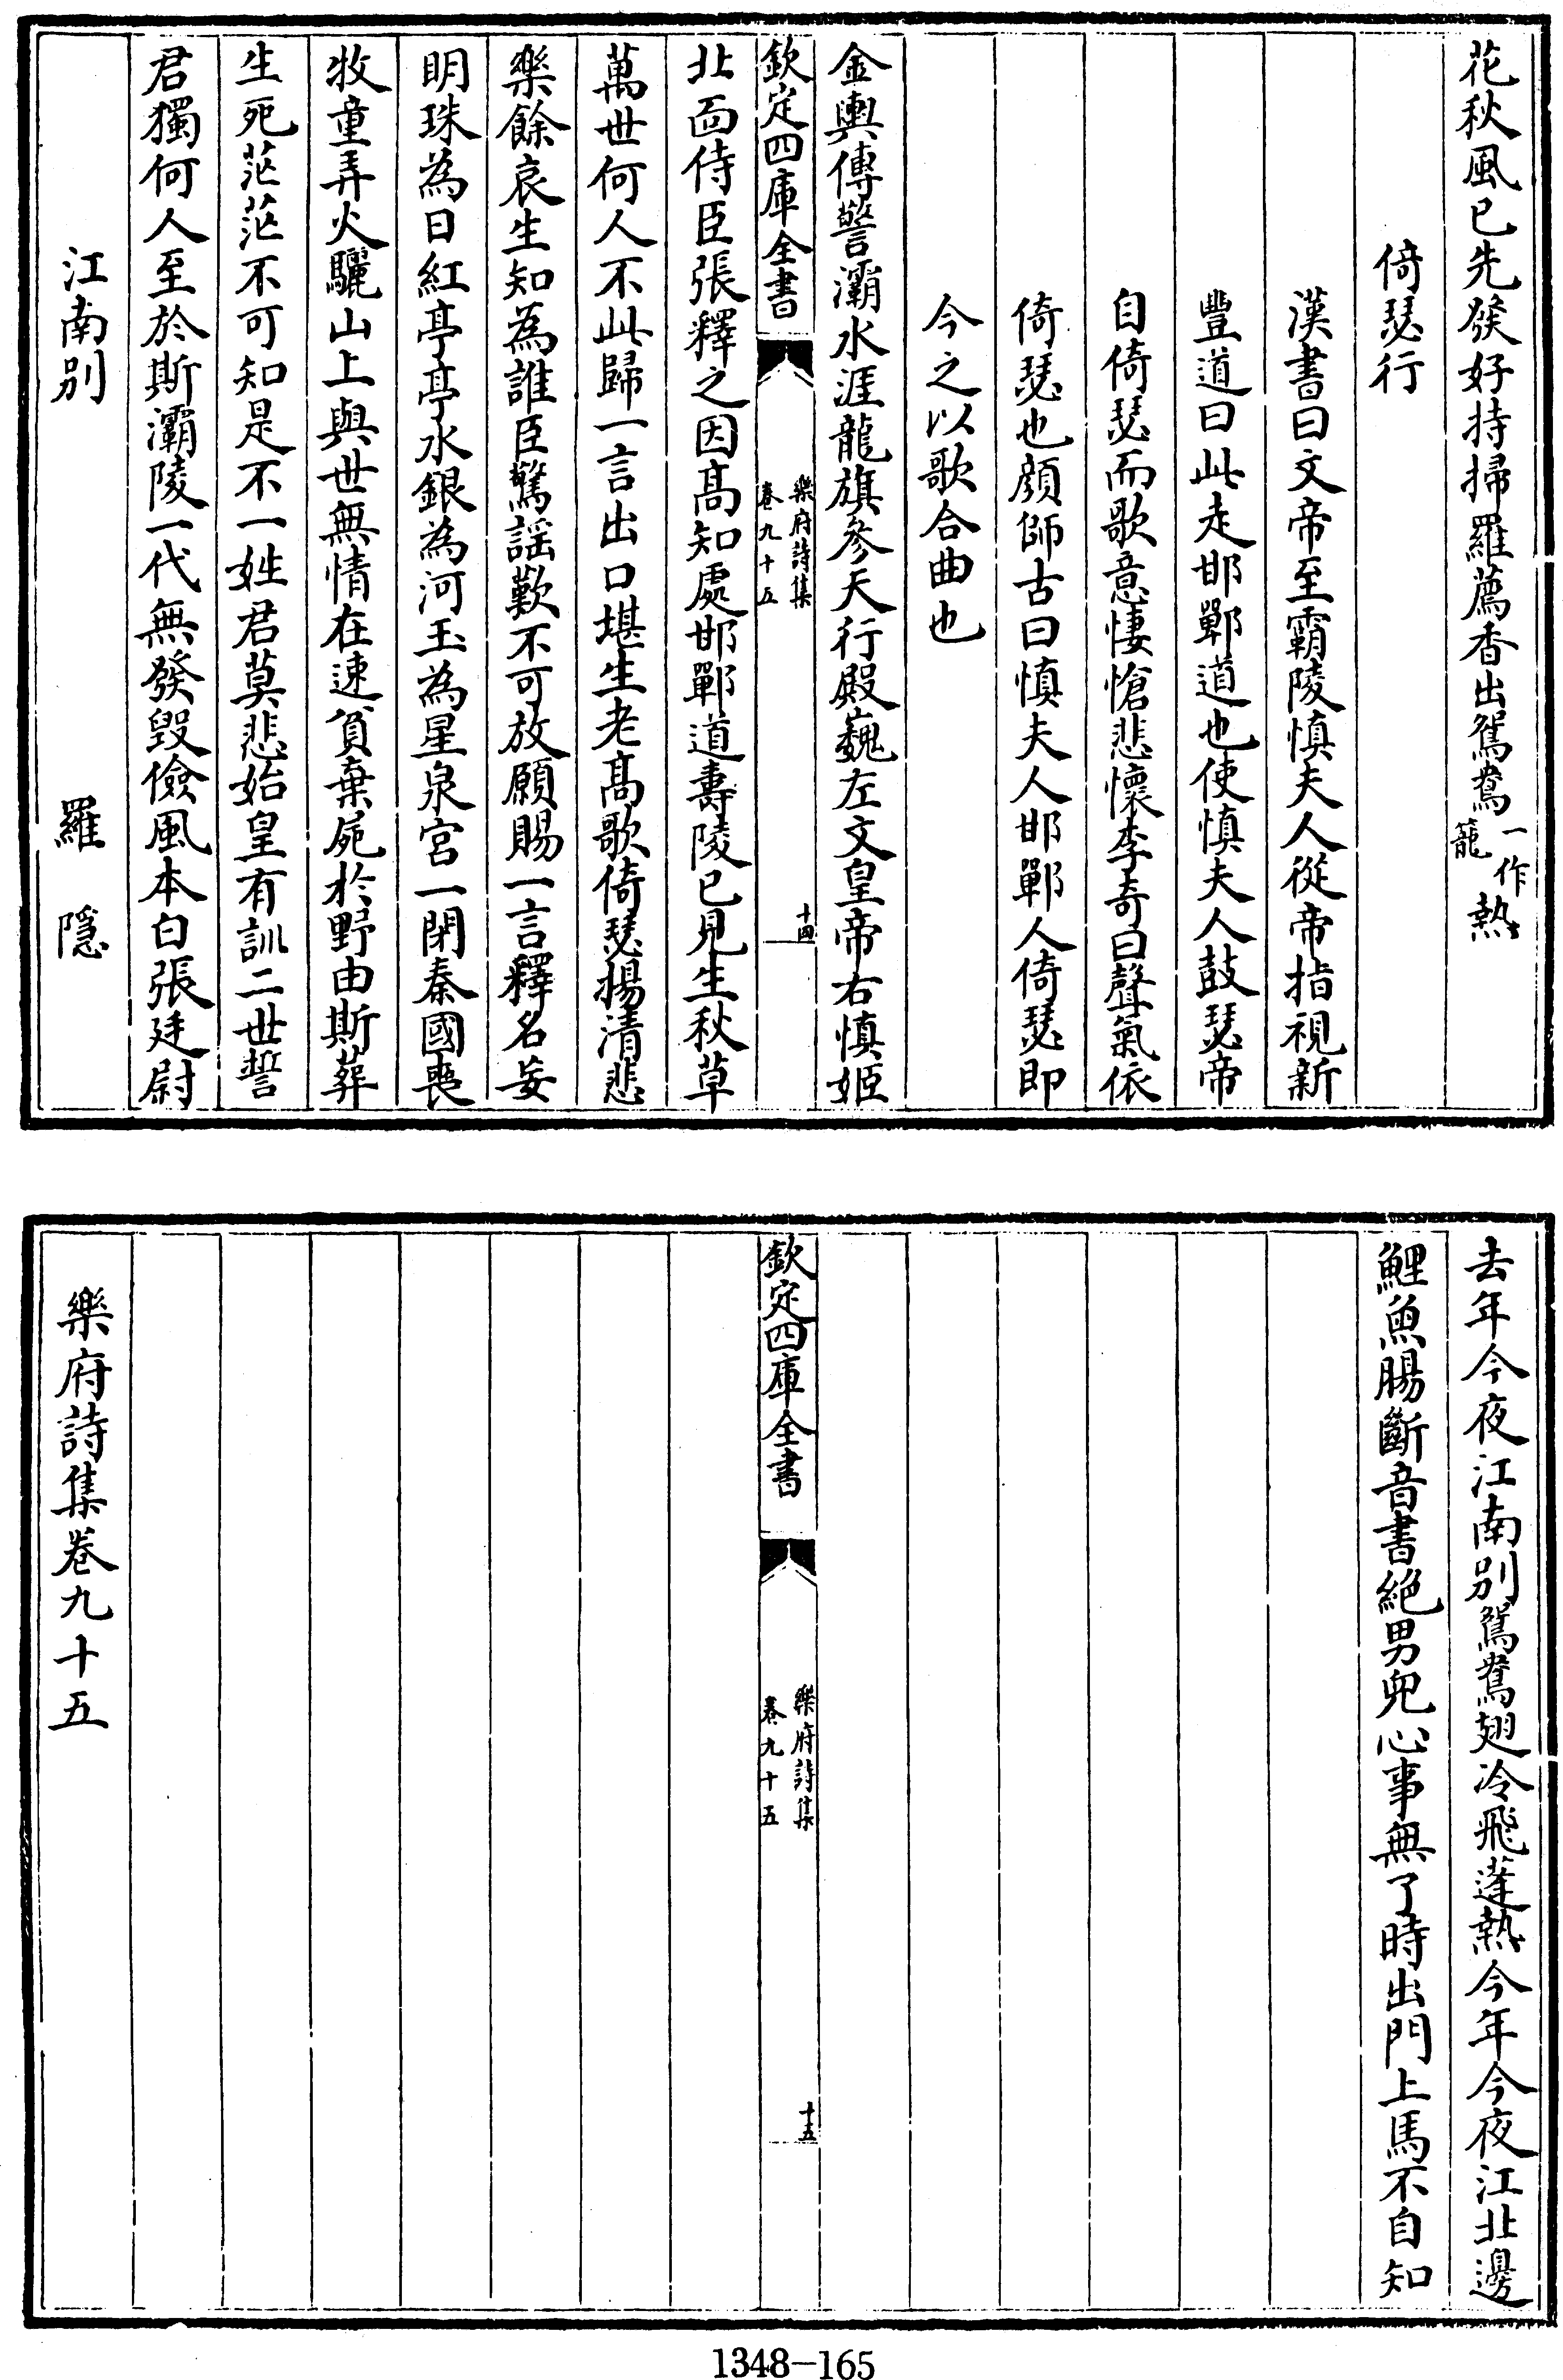 花秋風已先發好持掃羅薦香出鴛鴦一作籠熱
倚瑟行
漢書曰文帝至霸陵慎夫人從帝指視新
豐道曰此走邯鄲道也使慎夫人鼓瑟帝
自倚瑟而歌意悽愴悲懷李奇曰聲氣依
倚瑟也顔師古曰慎夫人邯鄲人倚瑟即
今之以歌合曲也
金輿傳警灞水涯龍旗參天行殿巍左文皇帝右慎姬
欽定四庫全書
樂府詩集
卷九十五
十四
北面侍臣張釋之因髙知處邯鄲道壽陵已見生秋草
萬世何人不此歸一言出口堪生老髙歌倚瑟揚清悲
樂餘哀生知為誰臣驚謡歎不可放願賜一言釋名妄
明珠為日紅亭亭水銀為河玉為星泉宮一閉秦國喪
牧童弄火驪山上與世無情在速貧棄屍於野由斯葬
生死茫茫不可知是不一姓君莫悲始皇有訓二世誓
君獨何人至於斯灞陵一代無發毀儉風本白張廷尉
江南別 羅隱
去年今夜江南別鴛鴦翅冷飛蓬熱今年今夜江北邊
鯉魚腸斷音書絶男兒心事無了時出門上馬不自知
欽定四庫全書
樂府詩集
卷九十五
十五
樂府詩集卷九十五
1348—165